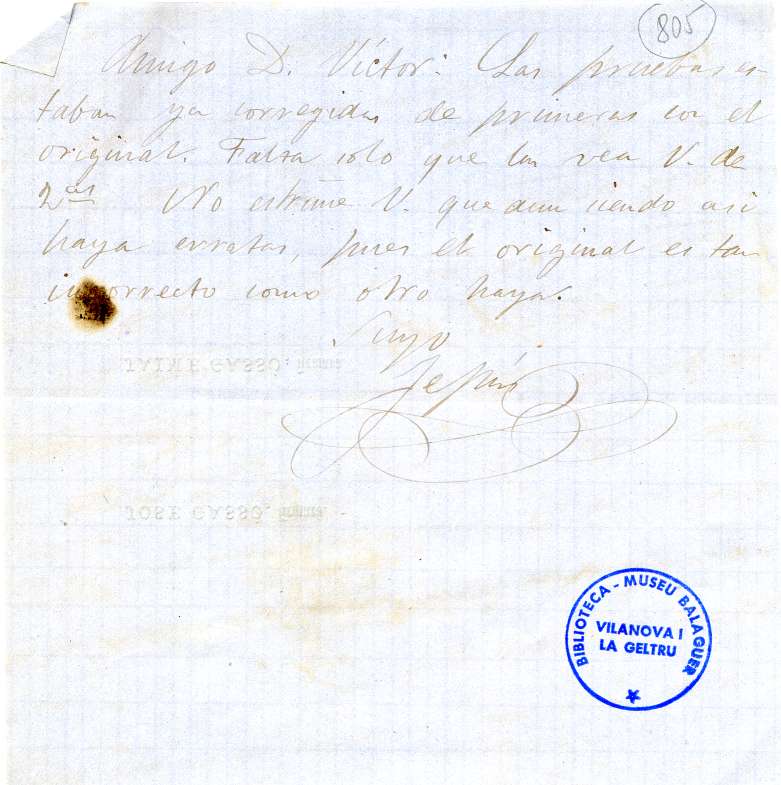 805
Amigo D. Víctor: Las pruebas es-
taban ya corregidas de primeras con el
original. Falta solo que las vea V. de
2as No estrañe V. que aun siendo asi
haya erratas, pues el original es tan
incorrecto como otro haya.
Suyo
Jepús
JAIME GASSÓ, firmará
JOSÉ GASSÓ, firmará
BIBLIOTECA - MUSEU BALAGUER
VILANOVA I
LA GELTRU